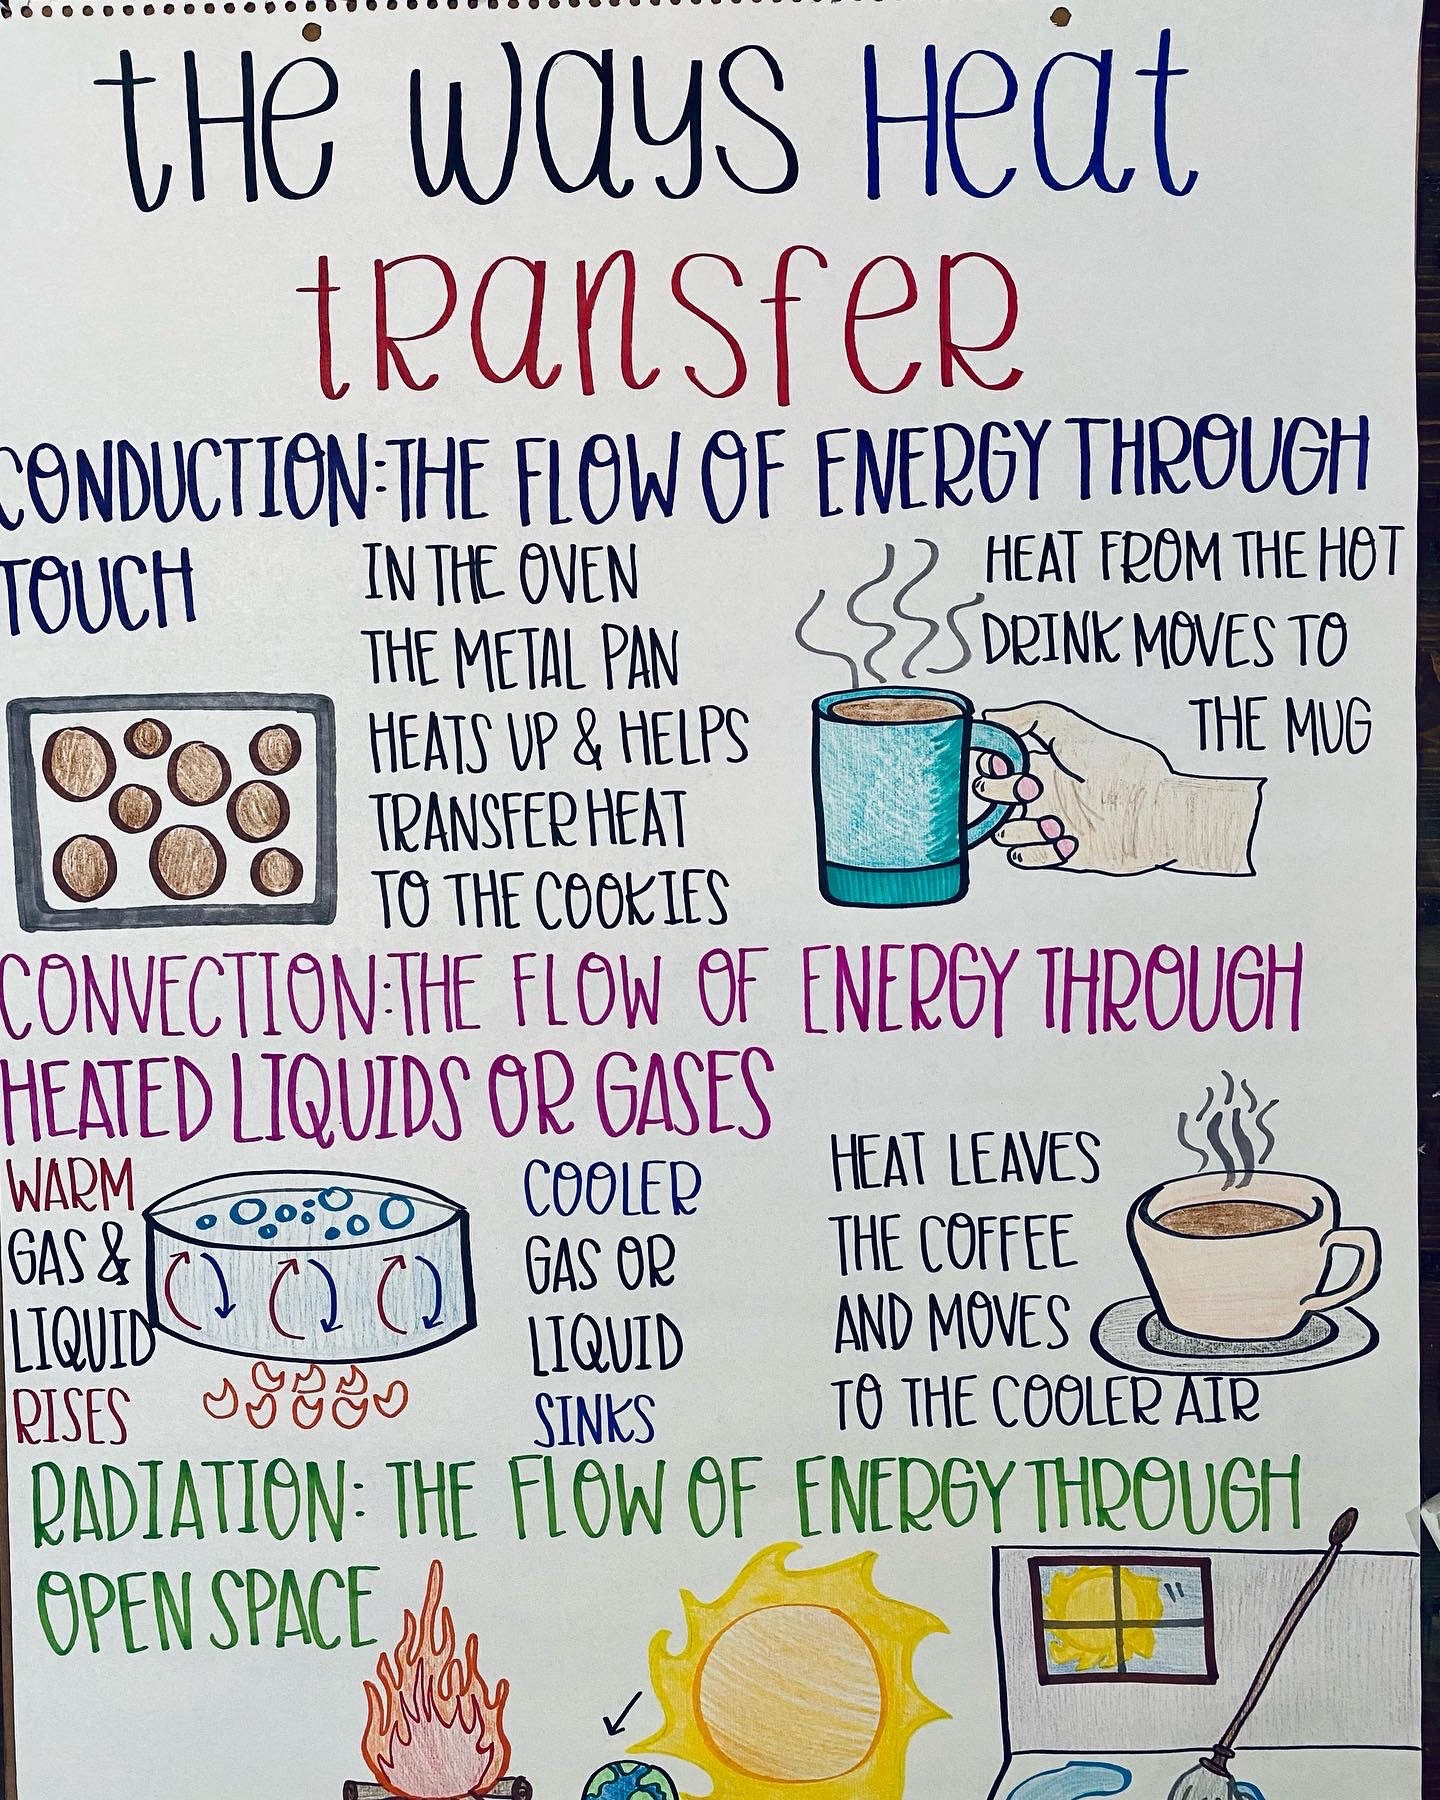 tHe ways Heat
tRansfeR
CONDUCTION:THE FLOW OF ENERGY THROUGH
TOUCH
IN THE OVEN
THE METAL PAN
HEATS UP & HELPS
TRANSFER HEAT
TO THE COOKIES
HEAT FROM THE HOT
DRINK MOVES TO
THE MUG
CONVECTION:THE FLOW OF ENERGY THROUGH
HEATED LIQUIDS OR GASES
WARM
GAS &
LIQUID
RISES
COOLER
GAS OR
LIQUID
SINKS
HEAT LEAVES
THE COFFEE
AND MOVES
TO THE COOLER AIR
RADIATION: THE FLOW OF ENERGY THROUGH
OPEN SPACE